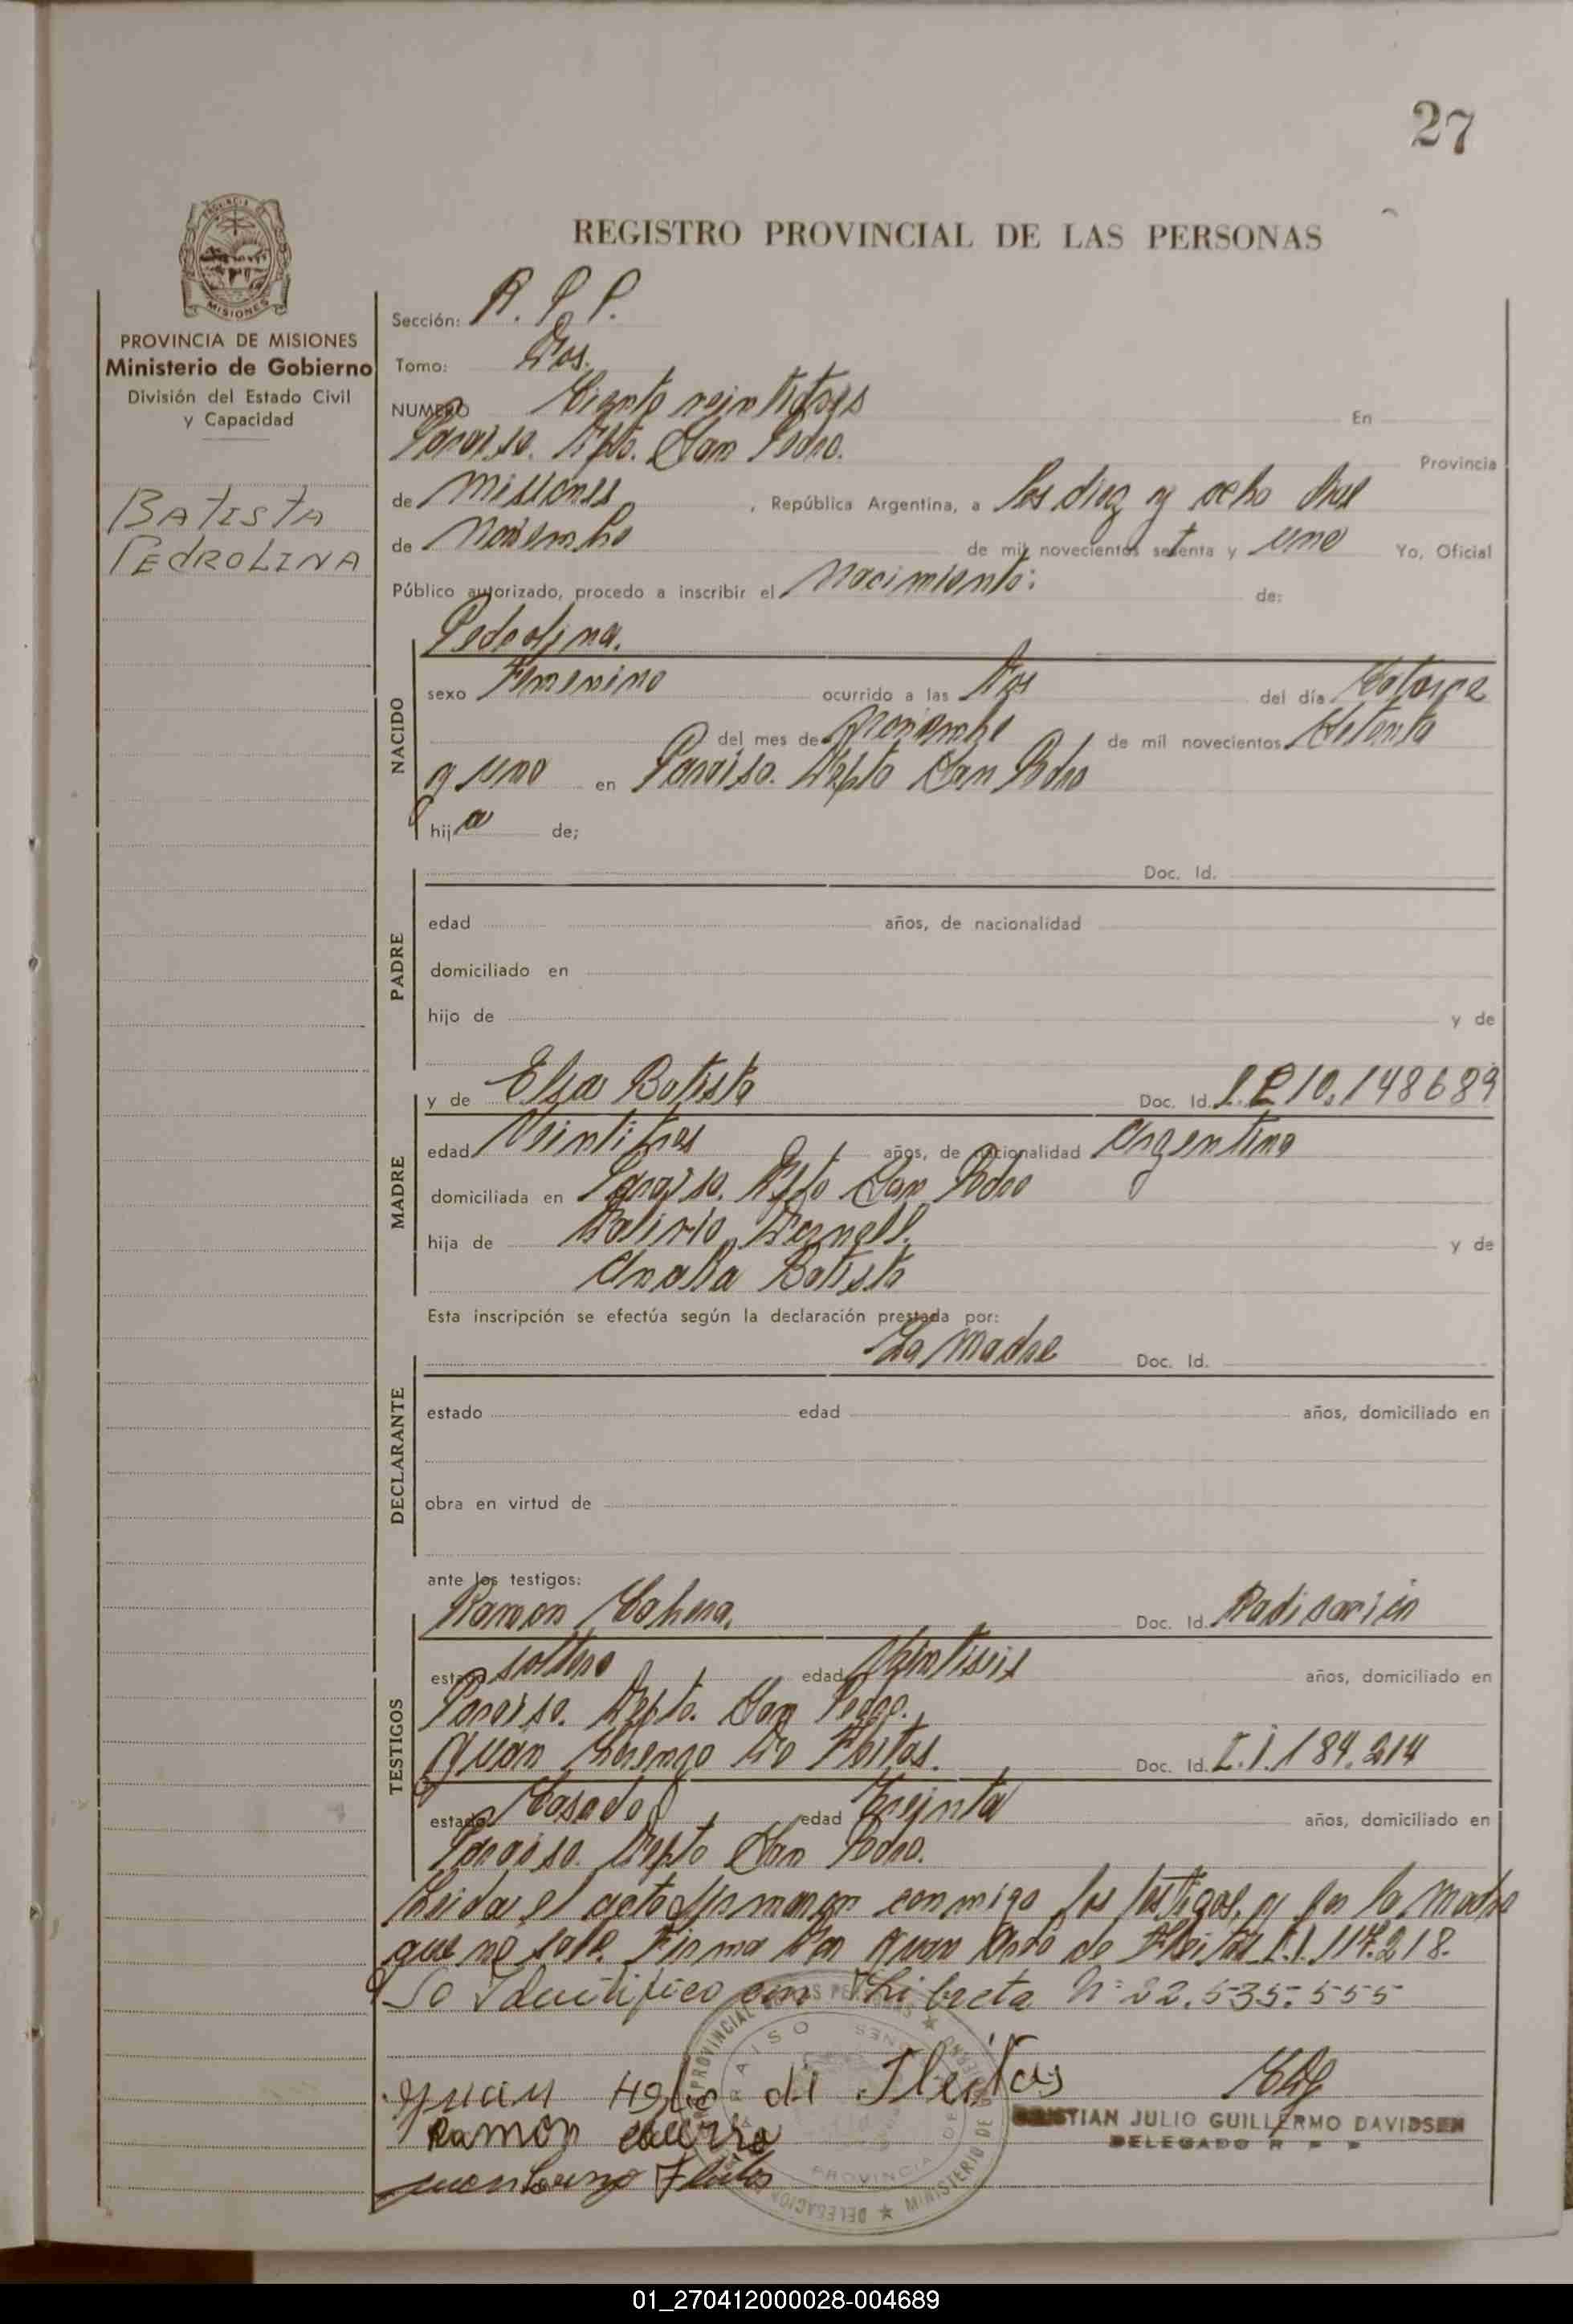 27
REGISTRO PROVINCIAL DE LAS PERSONAS
MISIONES
PROVINCIA DE MISIONES
Ministerio de Gobierno
División del Estado Civil
y Capacidad
BATISTA
PEDROLINA
Sección: R. P. P.
Tomo: Dos.
NUMERO Ciento veintitres En
Paraiso. Dpto. San Pedro. Provincia
de Misiones, República Argentina, a los diez y ocho dias
de Noviembre de mil novecientos setenta y uno Yo, Oficial
Público autorizado, procedo a inscribir el Nacimiento: de:
NACIDO
Pedrolina.
sexo Femenino ocurrido a las Dos del día Catorce
del mes de Noviembre de mil novecientos Setenta
y uno en Paraiso. Depto San Pedro
hija de;
PADRE
Doc. Id.
edad años, de nacionalidad
domiciliado en
hijo de y de
MADRE
y de Elsa Batista Doc. Id. 10.148689
edad Veintitres años, de nacionalidad Argentina
domiciliada en Paraiso. Dpto San Pedro
hija de y de
Batista
Esta inscripción se efectúa según la declaración prestada por:
DECLARANTE
La Madre Doc. Id.
estado edad años, domiciliado en
obra en virtud de
ante los testigos:
TESTIGOS
Ramon Doc. Id.
estado soltero edad Veintiseis años, domiciliado en
Paraiso. Depto. San Pedro.
Juan Lorenzo De Fleitas. Doc. Id. I. 1.189.214
estado Casado edad Treinta años, domiciliado en
Paraiso. Depto San Pedro.
Leida el acta firmaron conmigo los testigos, y por la Madre
que no sabe. Firma Don Juan de Fleitas I. 1.117.218.
Se Identifico con Libreta Nº 22.535.555
Juan de Fleitas
CRISTIAN JULIO GUILLERMO DAVIDSEN
DELEGADO R P P
Ramon
Juan Lorenzo Fleitas
01_270412000028-004689